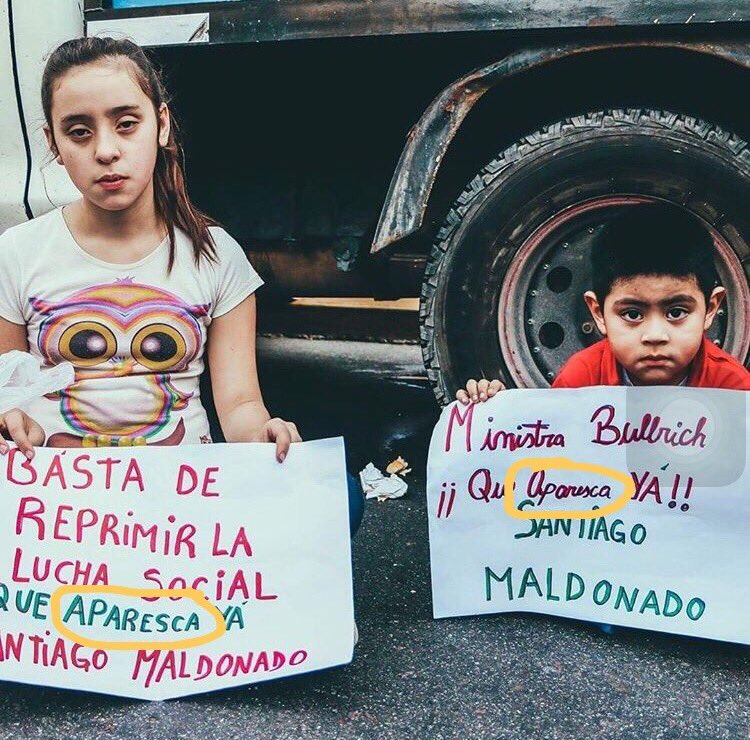 BÁSTA DE
REPRIMIR LA
LUCHA SOCIAL
QUE APARESCA YÁ
SANTIAGO MALDONADO
Ministra Bullrich
¡¡ Que Aparesca YÁ!!
SANTIAGO
MALDONADO